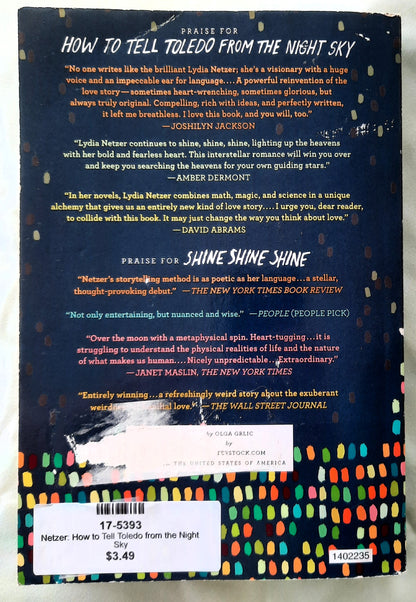 PRAISE FOR
HOW TO TELL TOLEDO FROM THE NIGHT SKY
“No one writes like the brilliant Lydia Netzer; she's a visionary with a huge
voice and an impeccable ear for language.... A powerful reinvention of the
love story—sometimes heart-wrenching, sometimes glorious, but
always truly original. Compelling, rich with ideas, and perfectly written,
it left me breathless. I love this book, and you will, too.”
—JOSHILYN JACKSON
“Lydia Netzer continues to shine, shine, shine, lighting up the heavens
with her bold and fearless heart. This interstellar romance will win you over
and keep you searching the heavens for your own guiding stars.”
—AMBER DERMONT
“In her novels, Lydia Netzer combines math, magic, and science in a unique
alchemy that gives us an entirely new kind of love story.... I urge you, dear reader,
to collide with this book. It may just change the way you think about love.”
—DAVID ABRAMS
PRAISE FOR SHINE SHINE SHINE
“Netzer's storytelling method is as poetic as her language...a stellar,
thought-provoking debut.” —THE NEW YORK TIMES BOOK REVIEW
“Not only entertaining, but nuanced and wise.” —PEOPLE (PEOPLE PICK)
“Over the moon with a metaphysical spin. Heart-tugging...it is
struggling to understand the physical realities of life and the nature
of what makes us human.... Nicely unpredictable... Extraordinary.”
—JANET MASLIN, THE NEW YORK TIMES
“Entirely winning...a refreshingly weird story about the exuberant
love.” —THE WALL STREET JOURNAL
by OLGA GRLIC
by
THE UNITED STATES OF AMERICA
17-5393
Netzer: How to Tell Toledo from the Night
Sky
$3.49
1402235